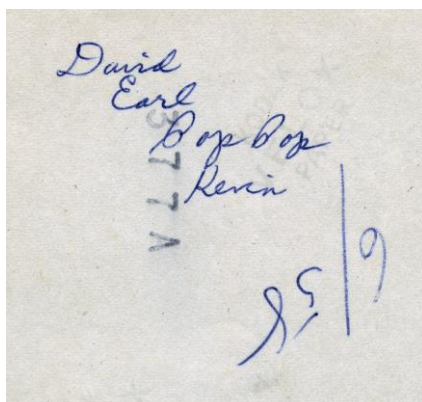 David
Earl
Pop Pop
Kevin
377A